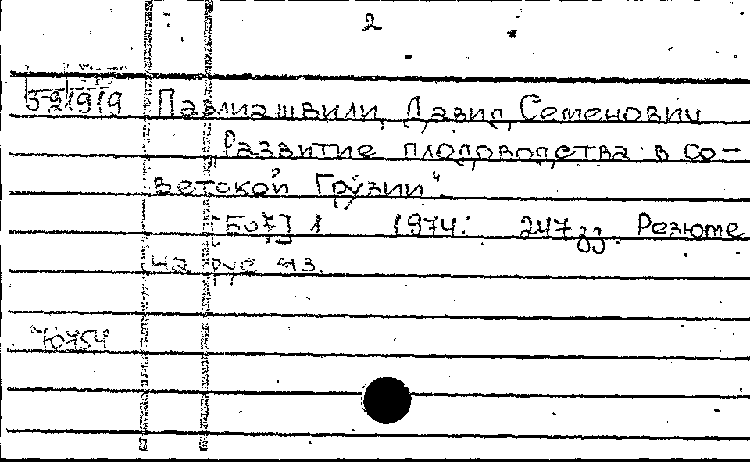 2
Павлиашвили, Давид Семенович
"Развитие плодоводства в Со-
ветской Грузии".
1 1974. 247 Резюме
на рус. яз.